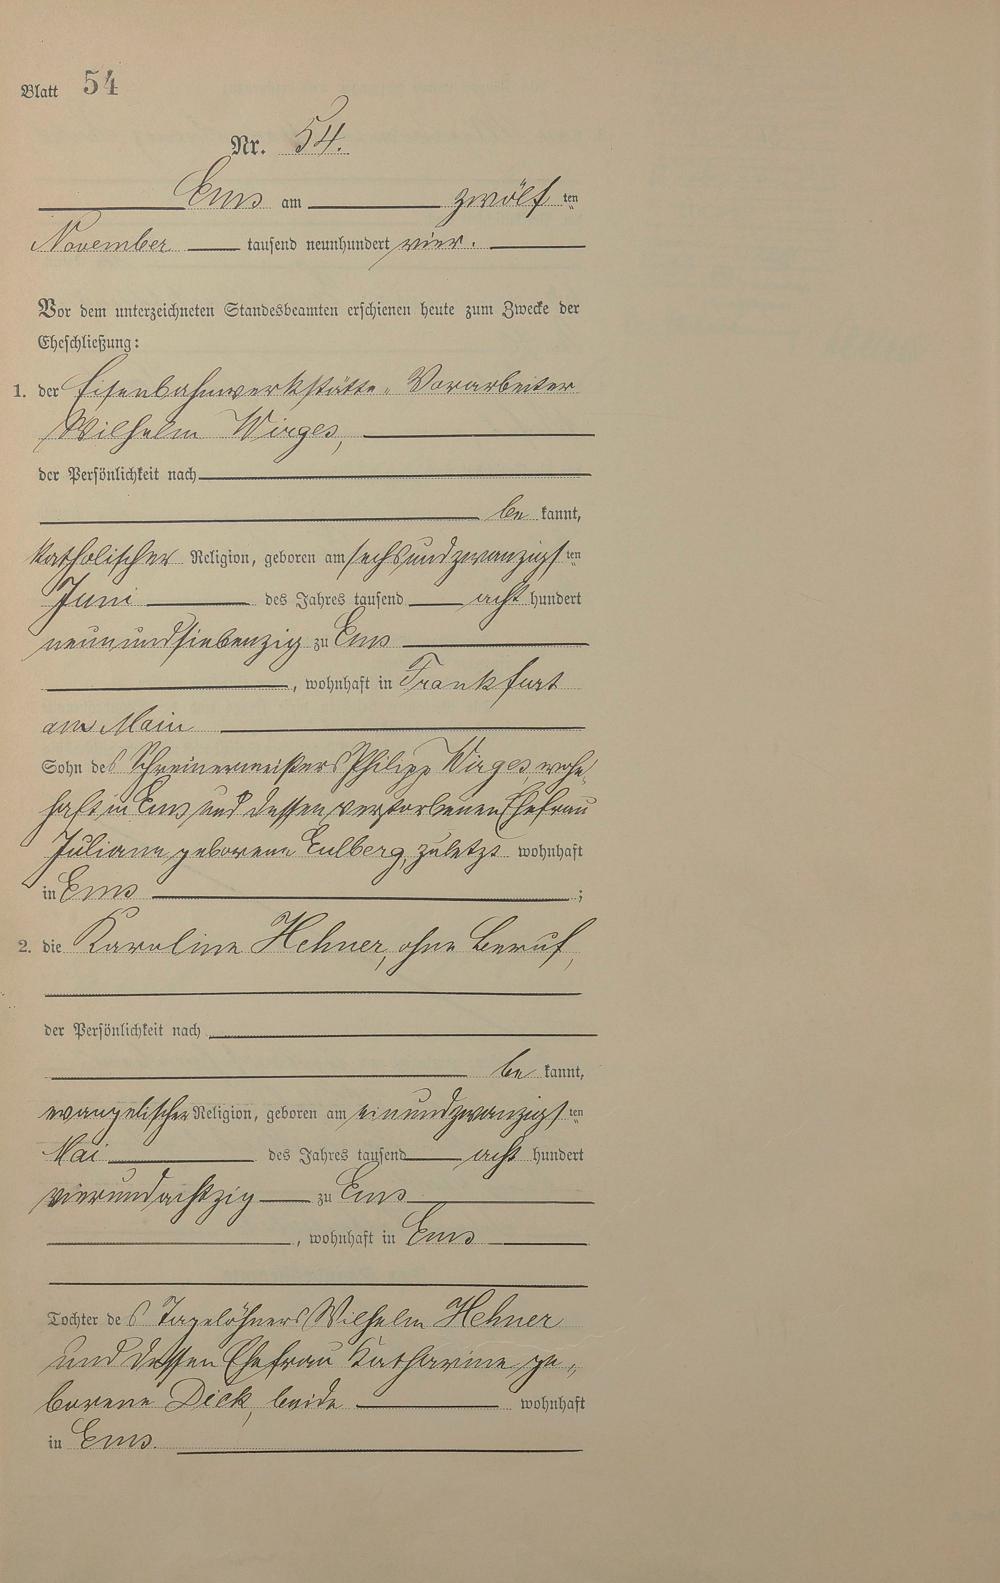 Blatt 54
Nr. 54.
Ems am zwölften
November tausend neunhundert vier.
Vor dem unterzeichneten Standesbeamten erschienen heute zum Zwecke der
Eheschließung:
1. der Eisenbahnwerkstätte-Vorarbeiter
Wilhelm Wirges,
der Persönlichkeit nach
be kannt,
katholischer Religion, geboren am sechsundzwanzigsten
Juni des Jahres tausend acht hundert
neunundsiebenzig zu Ems
, wohnhaft in Frankfurt
am Main
Sohn des Schreinermeisters Philipp Wirges, wohn-
haft in Ems und dessen verstorbenen Ehefrau
Juliane geborene Eulberg, zuletzt wohnhaft
in Ems ;
2. die Karoline Hehner, ohne Beruf,
der Persönlichkeit nach
be kannt,
evangelischer Religion, geboren am einundzwanzigsten
Mai des Jahres tausend acht hundert
vierundachtzig zu Ems
, wohnhaft in Ems
Tochter des Tagelöhners Wilhelm Hehner
und dessen Ehefrau Katharine ge-
borene Dick, beide wohnhaft
in Ems.